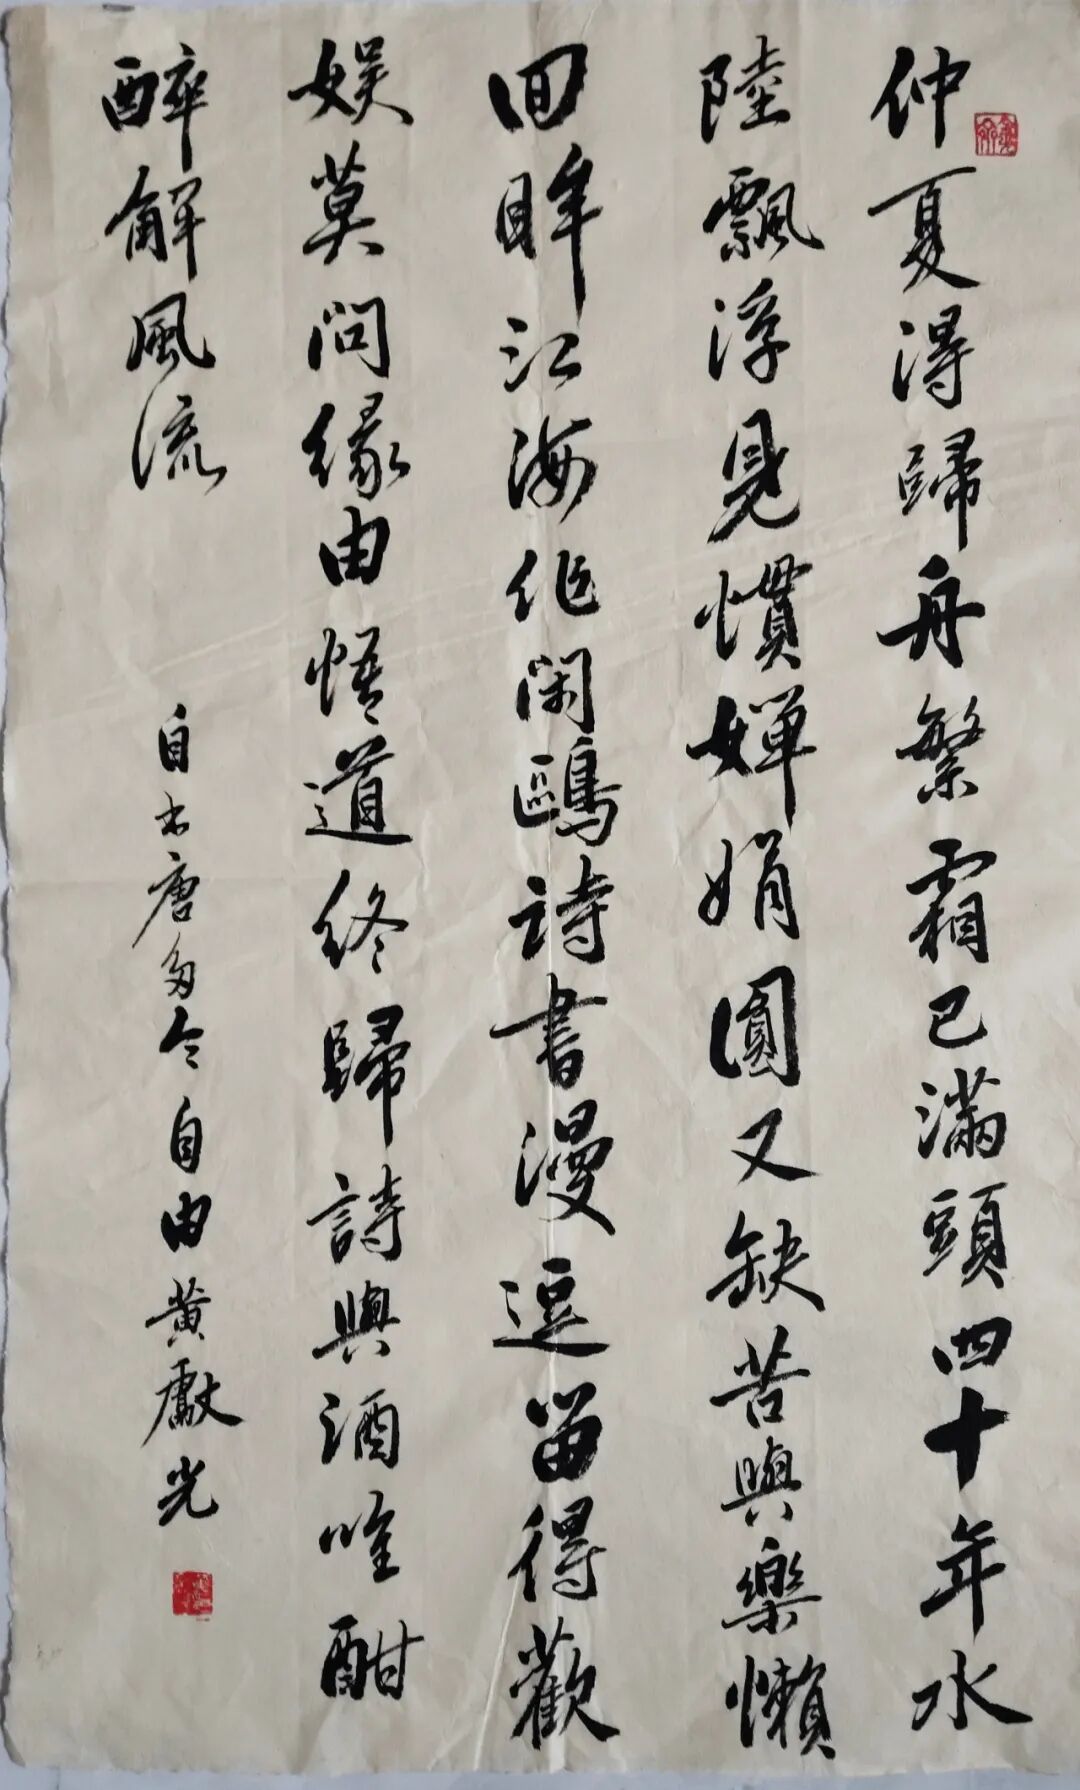 仲夏得歸舟繁霜已滿頭四十年水
陸飄浮見慣嬋娟圓又缺苦與樂懶
回眸江海作閑鷗詩書漫逗留得歡
娛莫問緣由悟道終歸詩與酒唯酣
醉解風流
自书唐多令自由黄獻光